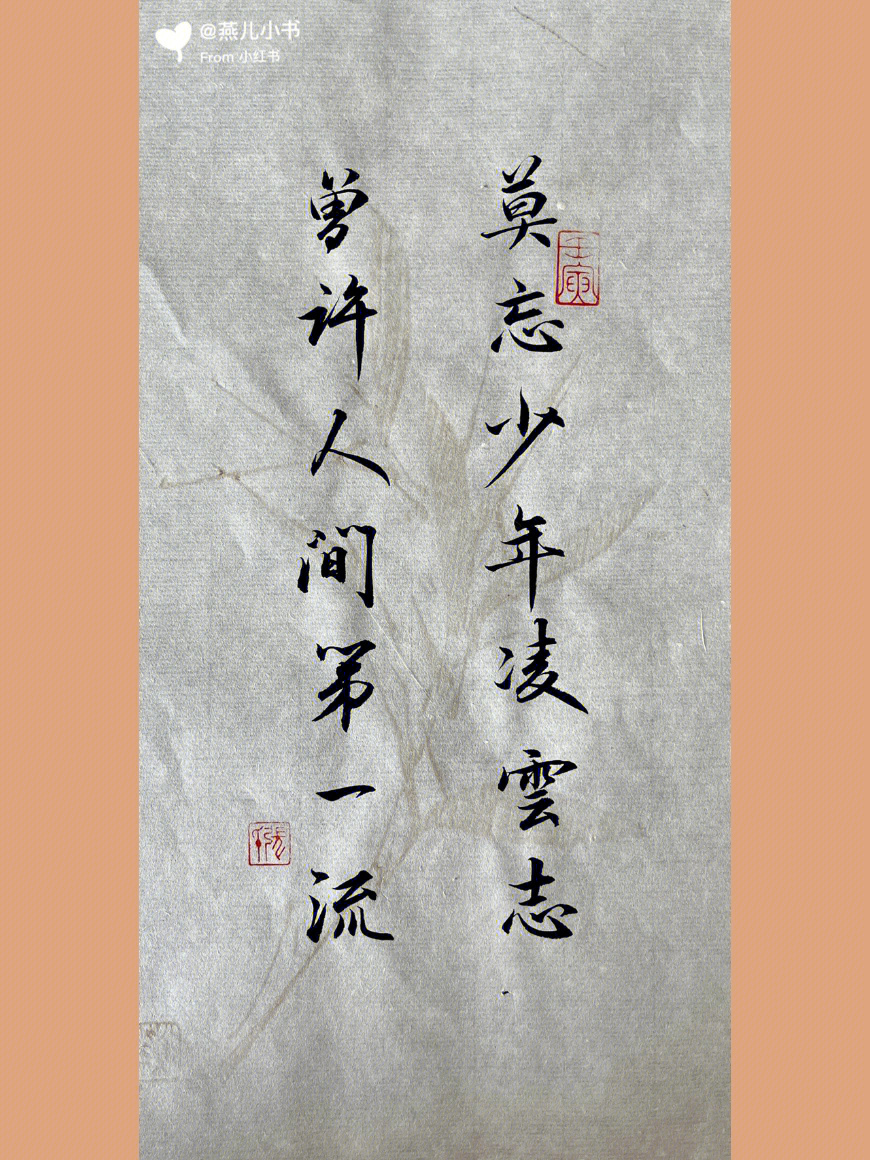 @燕儿小书
From 小红书
莫忘少年凌雲志
曾许人間第一流
壬寅